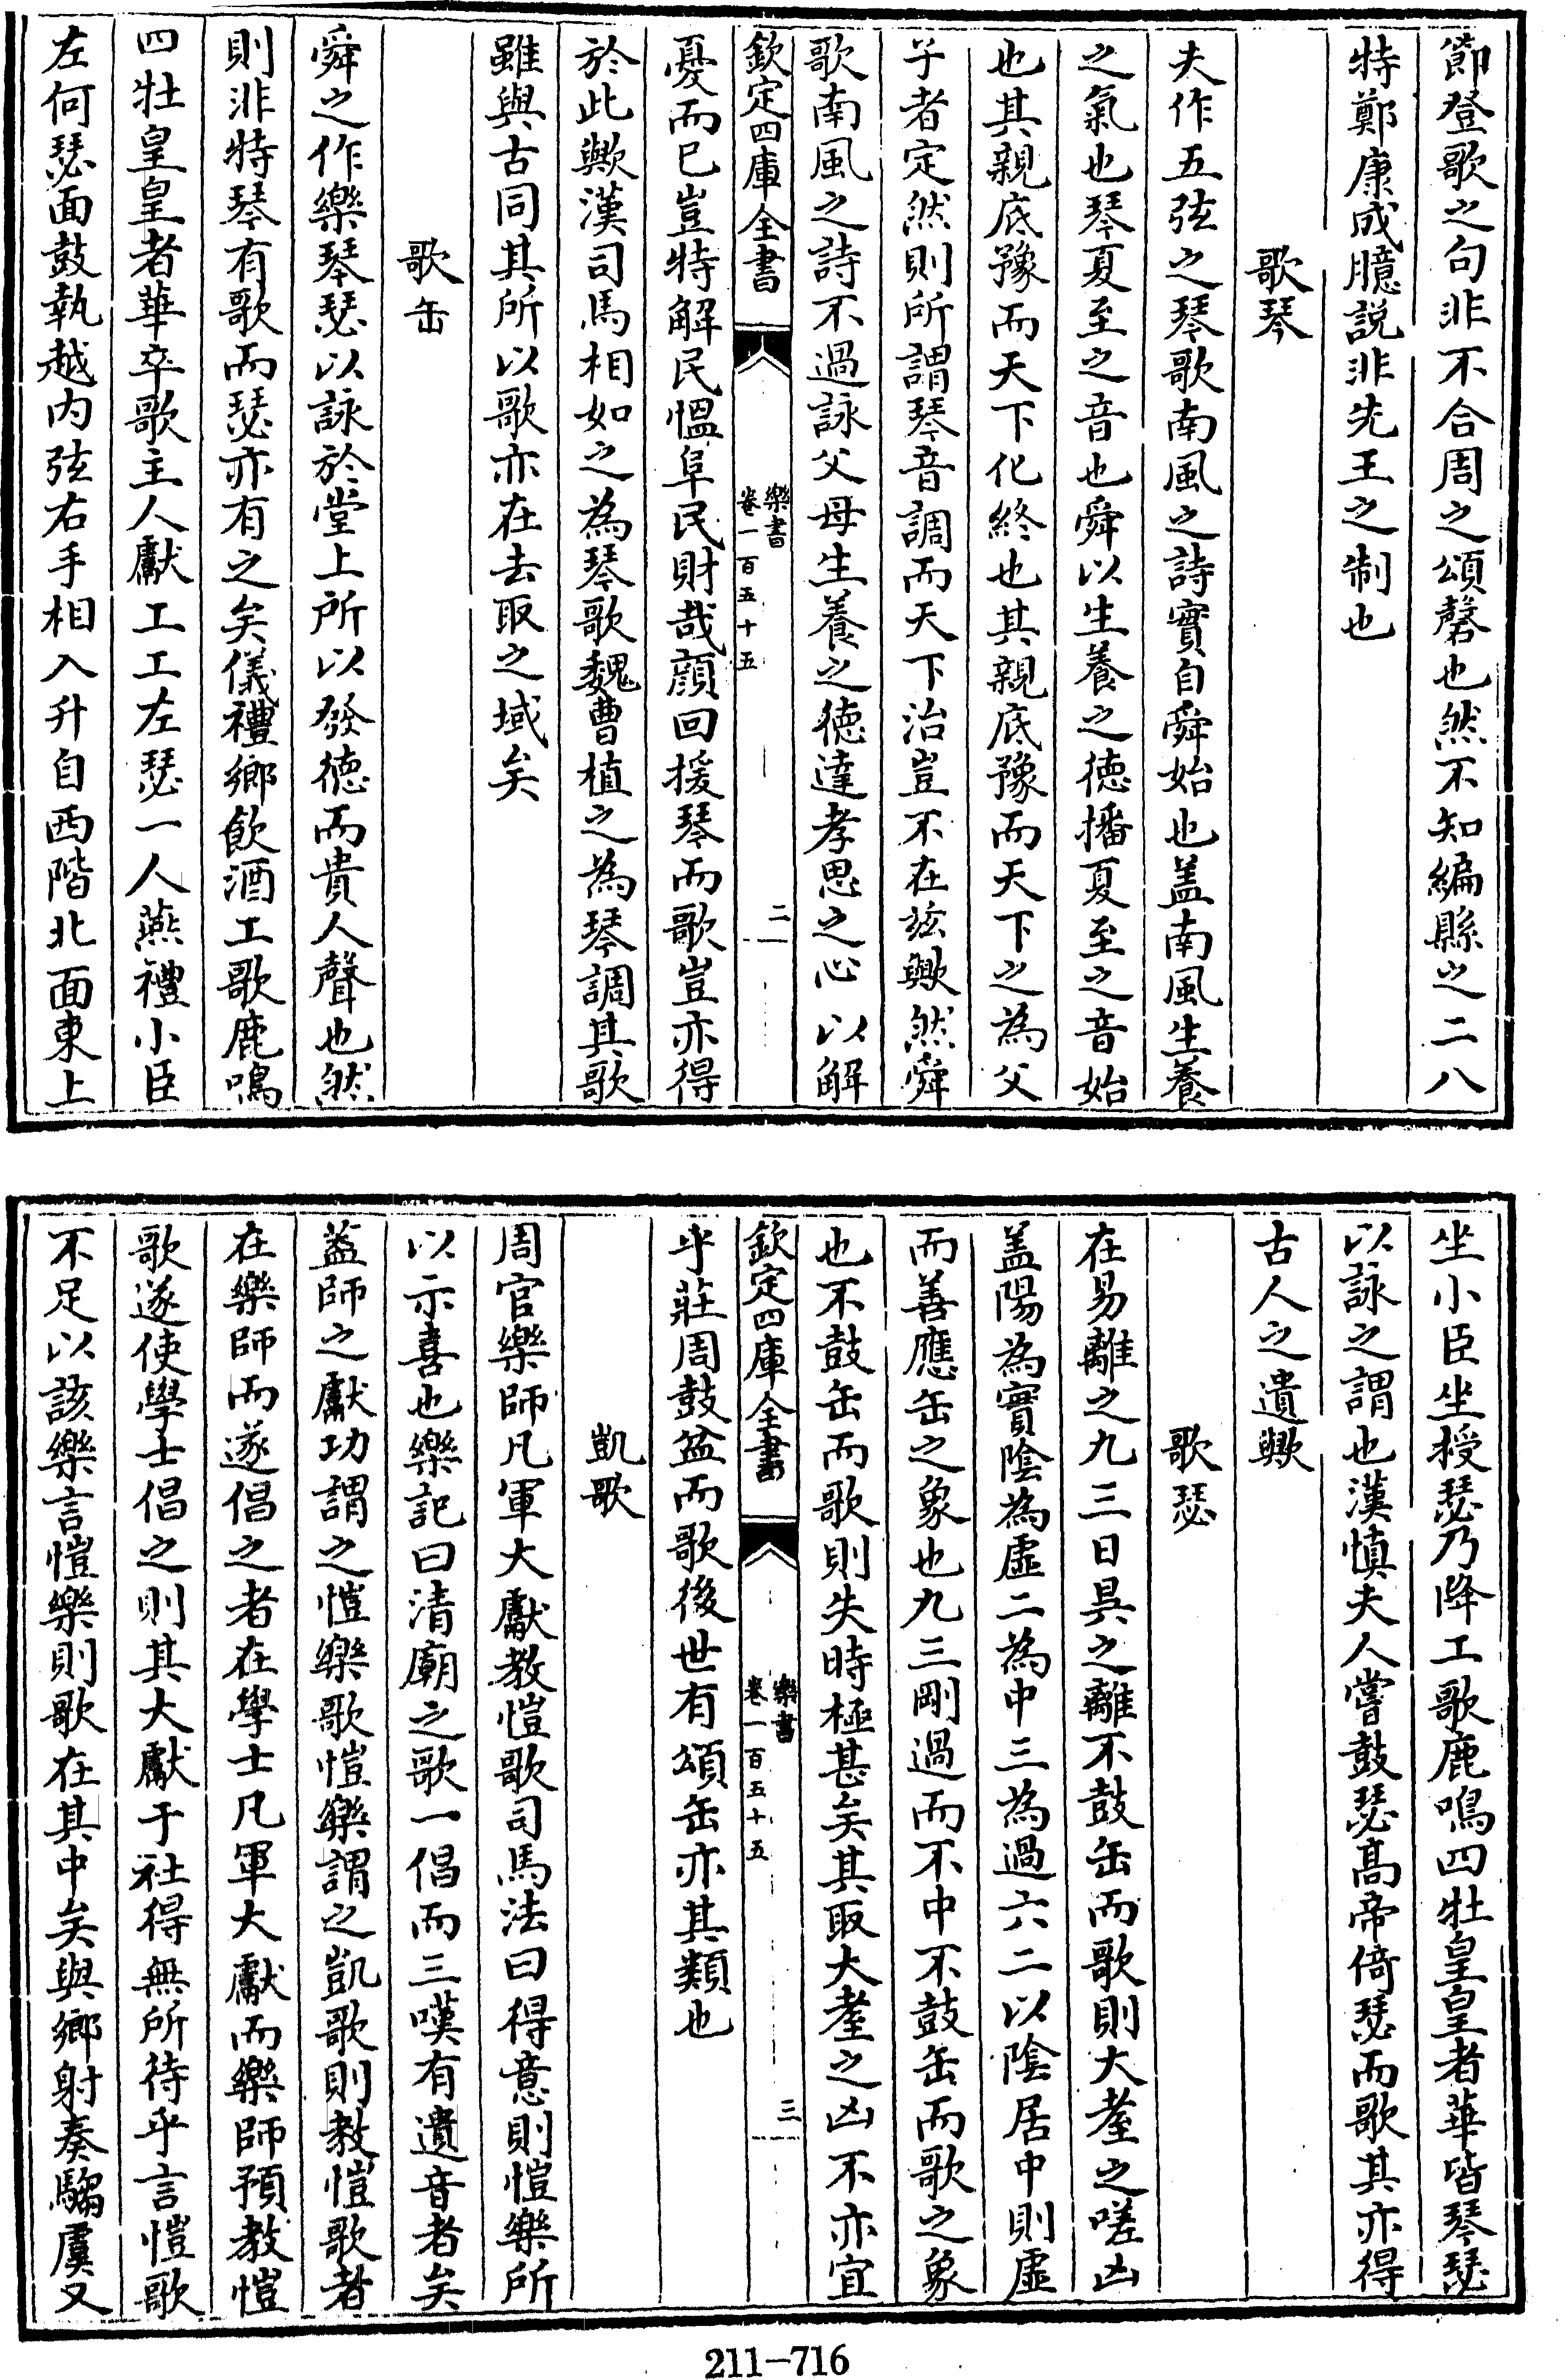 節登歌之句非不合周之頌磬也然不知編縣之二八
特鄭康成臆説非先王之制也
歌琴
夫作五弦之琴歌南風之詩實自舜始也盖南風生養
之氣也琴夏至之音也舜以生養之德播夏至之音始
也其親底豫而天下化終也其親底豫而天下之為父
子者定然則所謂琴音調而天下治豈不在兹歟然舜
歌南風之詩不過詠父母生養之德達孝思之心以解
欽定四庫全書
樂書
卷一百五十五
二
憂而已豈特解民愠阜民財哉顔回援琴而歌豈亦得
於此歟漢司馬相如之為琴歌魏曹植之為琴調其歌
雖與古同其所以歌亦在去取之域矣
歌缶
舜之作樂琴瑟以詠於堂上所以發德而貴人聲也然
則非特琴有歌而瑟亦有之矣儀禮鄉飲酒工歌鹿鳴
四牡皇皇者華卒歌主人獻工工左瑟一人燕禮小臣
左何瑟面鼓執越内弦右手相入升自西階北面東上
坐小臣坐授瑟乃降工歌鹿鳴四牡皇皇者華皆琴瑟
以詠之謂也漢慎夫人嘗鼓瑟髙帝倚瑟而歌其亦得
古人之遺歟
歌瑟
在易離之九三日昃之離不鼓缶而歌則大耋之嗟凶
盖陽為實陰為虛二為中三為過六二以陰居中則虛
而善應缶之象也九三剛過而不中不鼓缶而歌之象
也不鼓缶而歌則失時極甚矣其取大耋之凶不亦宜
欽定四庫全書
樂書
卷一百五十五
三
乎莊周鼓盆而歌後世有頌缶亦其類也
凱歌
周官樂師凡軍大獻教愷歌司馬法曰得意則愷樂所
以示喜也樂記曰清廟之歌一倡而三嘆有遺音者矣
蓋師之獻功謂之愷樂歌愷樂謂之凱歌則教愷歌者
在樂師而遂倡之者在學士凡軍大獻而樂師預教愷
歌遂使學士倡之則其大獻于社得無所待乎言愷歌
不足以該樂言愷樂則歌在其中矣與鄉射奏騶虞又
211-716